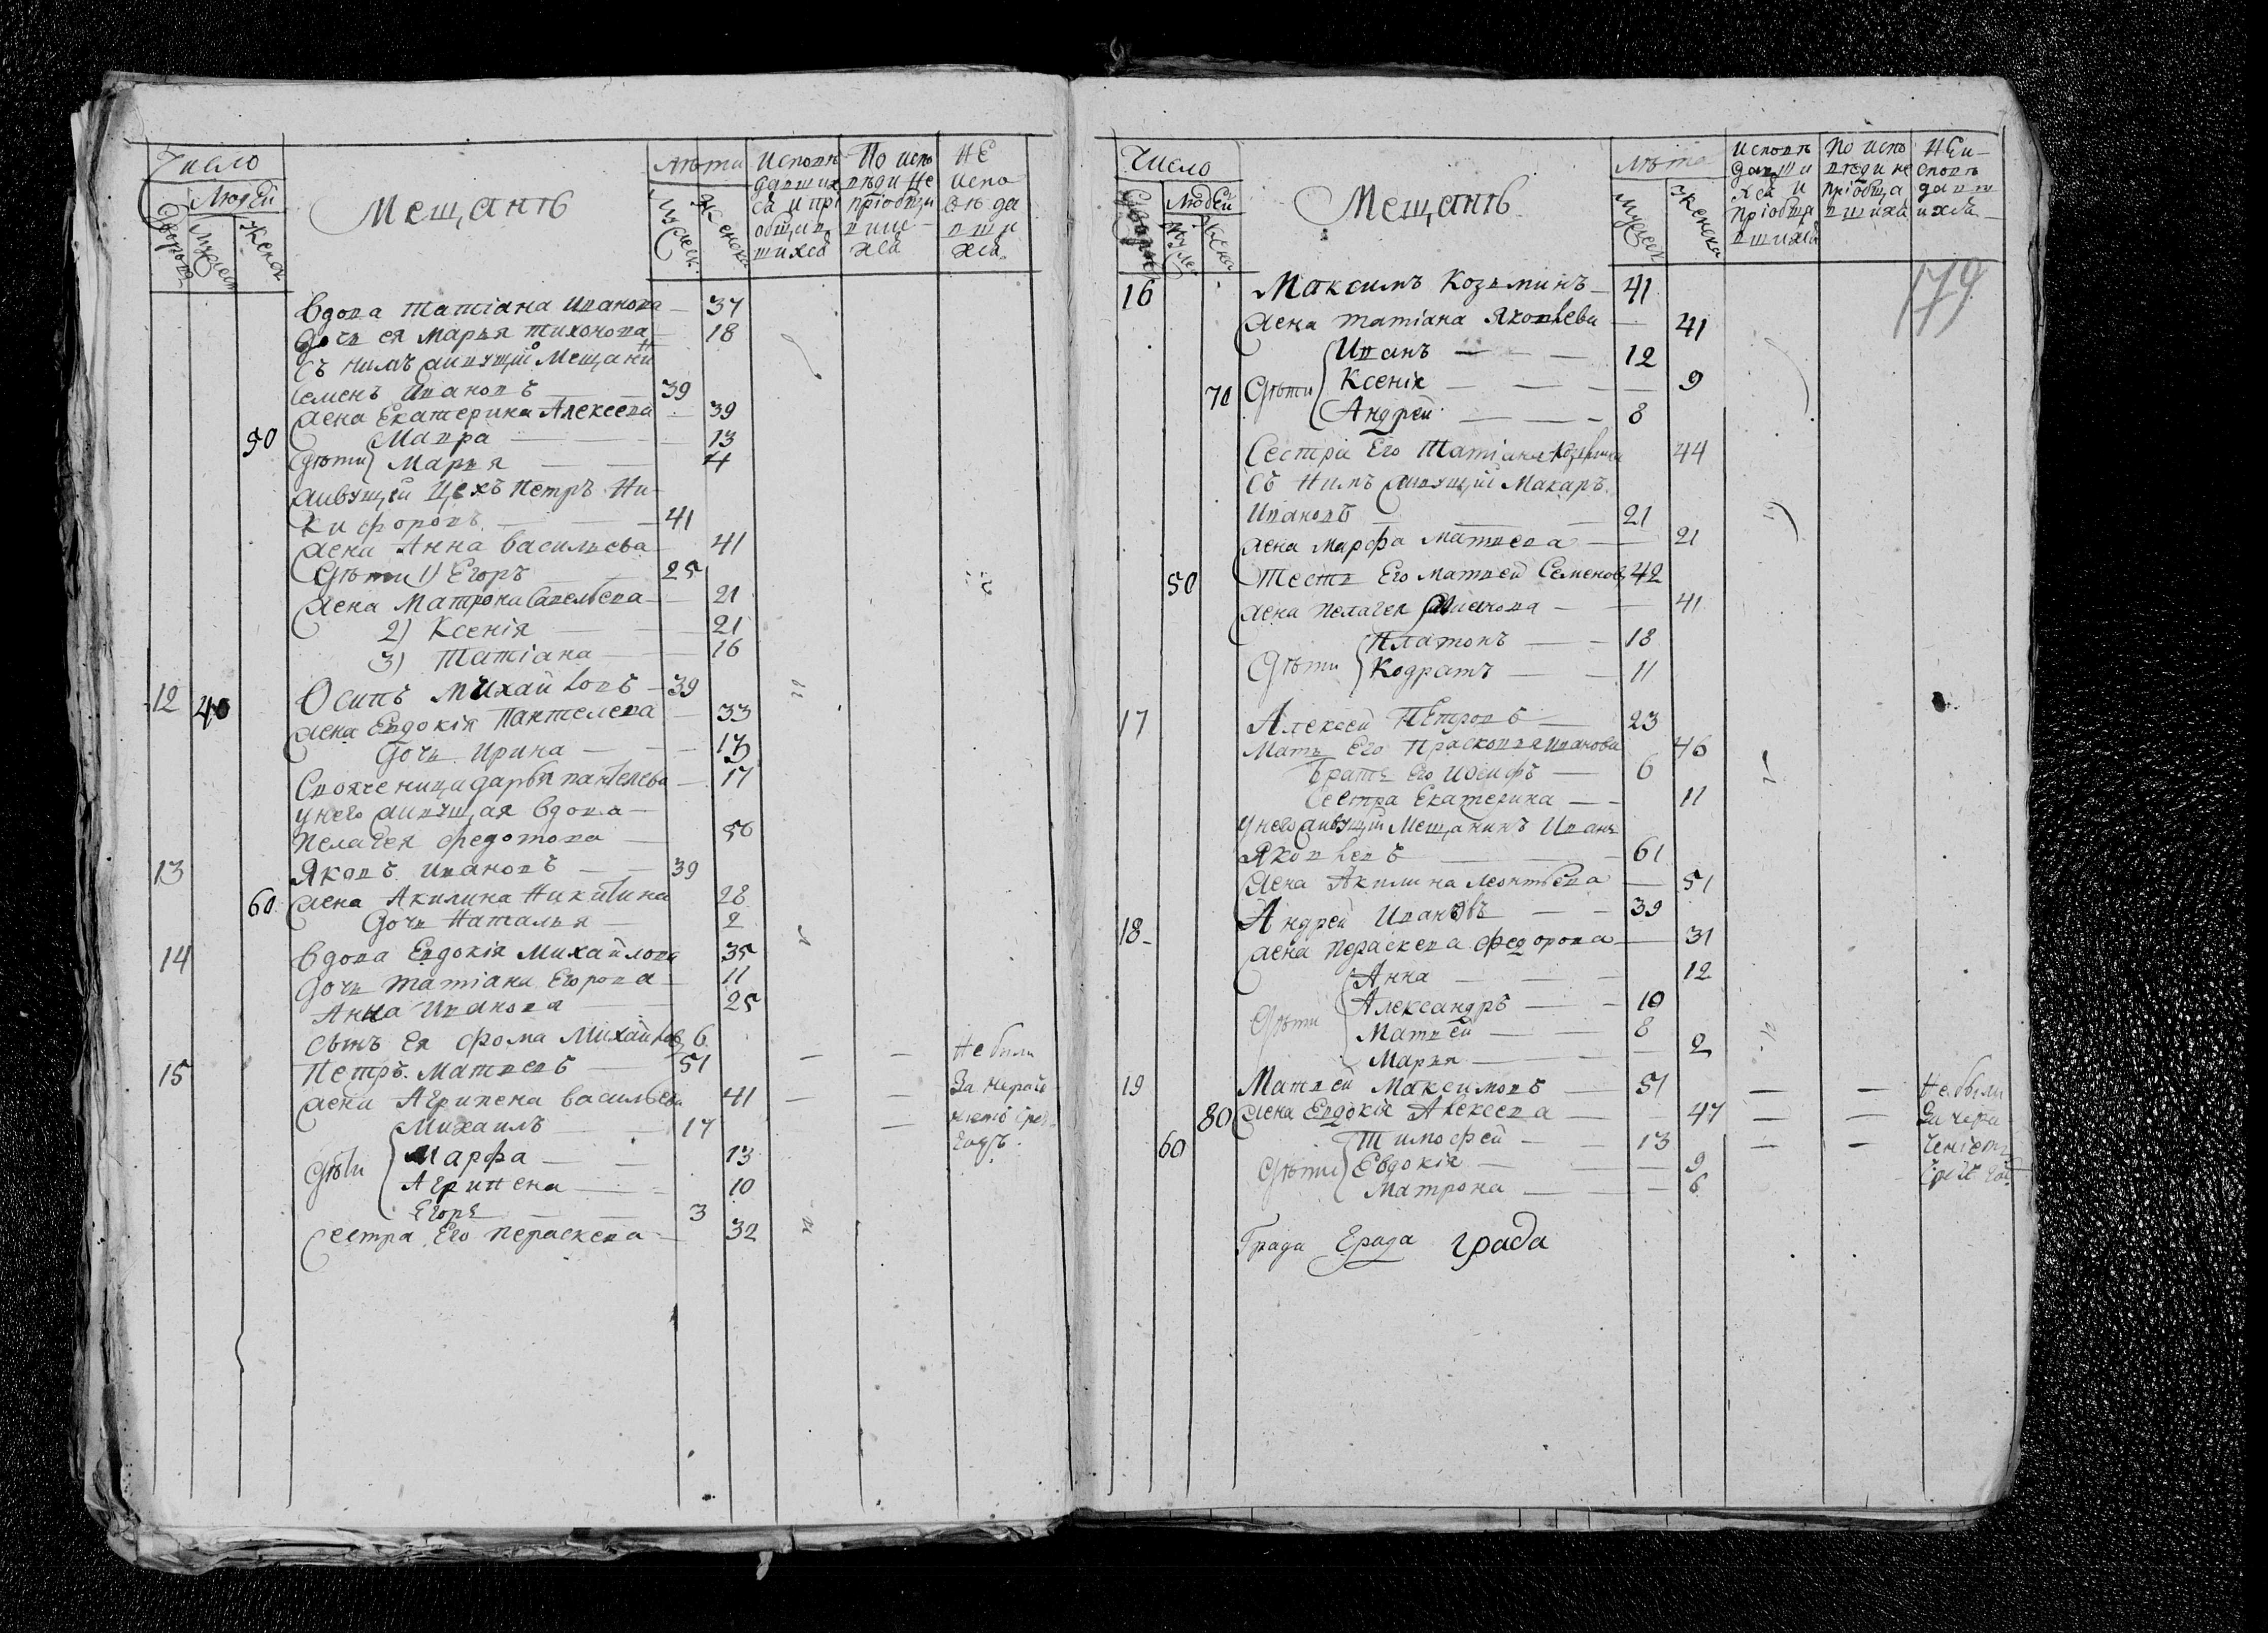 Число
Людей
Дворовъ
Мужеск
Женск
Мещанъ
лѣта
Мужеск.
Женска.
Исповѣ
давших
ся и прі
общив
шихся
По испо
вѣди не
пріобщи
вших
ся
НЕ
испо
вѣда
вши
хся
Вдова Татіана Иванова — 37
Дочь ея Марья Тихонова 18
Съ нимъ живущій Мещани
н
Семенъ Ивановъ — 39
Жена Екатерина Алексеева — 39
50 Мавра — 13
Дѣти Марья — 4
живущей Цехъ Петръ Ни-
кифоровъ — 41
Жена Анна Васильева — 41
Дѣти 1) Егоръ — 25
Жена Матрона Савельева — 21
2) Ксенія — 21
3) Татіана — 16
12 40 Осипъ Михайловъ — 39
Жена Евдокія Пантелева — 33
Дочь Ирина — 13
Свояченица Дарья Пантелева — 17
У него живущая вдова —
Пелагея Федотова — 50
13 Яковъ Ивановъ — 39
60 Жена Акилина Никитина 28
Дочь Наталья — 2
14 Вдова Евдокія Михайлова 35
Дочь Татіана Егорова — 11
Анна Иванова 25
Сынъ Ея Фома Михайлов 6
15 Петръ Матвеевъ — 51 — — Не были
Жена Агрипена Васильева 41 — — За нераче
Михаилъ — 17 —
годъ.
Дѣти Марфа — 13
Агрипена — 10
Егоръ — 3
Сестра Его Пераскева — 32
Число
Людей
Дворов
Муже
Жена
Мещанъ
лѣта
Мужеск
Женска
179
Исповѣ
давши
хся и
пріобщи
вшихся
По испо
вѣди не
пріобща
вшихся
НЕи-
сповѣ
давш
ихся
16 Максимъ Козьминъ — 41
Жена Татіана Яковлева — 41
Иванъ — 12
70 Дѣти Ксенія — 9
Андрей — 8
Сестра Его Татіана Козьмина 44
Съ Нимъ живущій Макаръ
Ивановъ — 21
Жена Марфа Матвеева — 21
50 Тесть Его Матвей Семенов 42
Жена Пелагея — 41
Платонъ — 18
Дѣти Кодратъ — 11
17 Алексей Петровъ — 23
Мать Его Прасковья Иванова 46
Братъ Его Иосифъ — 6
Сестра Екатерина — 11
У него живущій Мещанинъ Иванъ
Яковлевъ — 61
Жена Акилина Леонтьева — 51
18 Андрей Ивановъ — 39
Жена Пераскева Федорова — 31
Анна — 12
Дѣти Александръ — 10
Матвей — 8
Марья — 2
19 Матвей Максимовъ — 51 — — Не были
80 Жена Евдокія Алексеева — 47 — — За нера
60 Тимофей — 13 — — ченіемъ
Дѣти Евдокія — 9
Матрона — 6
Града Града града